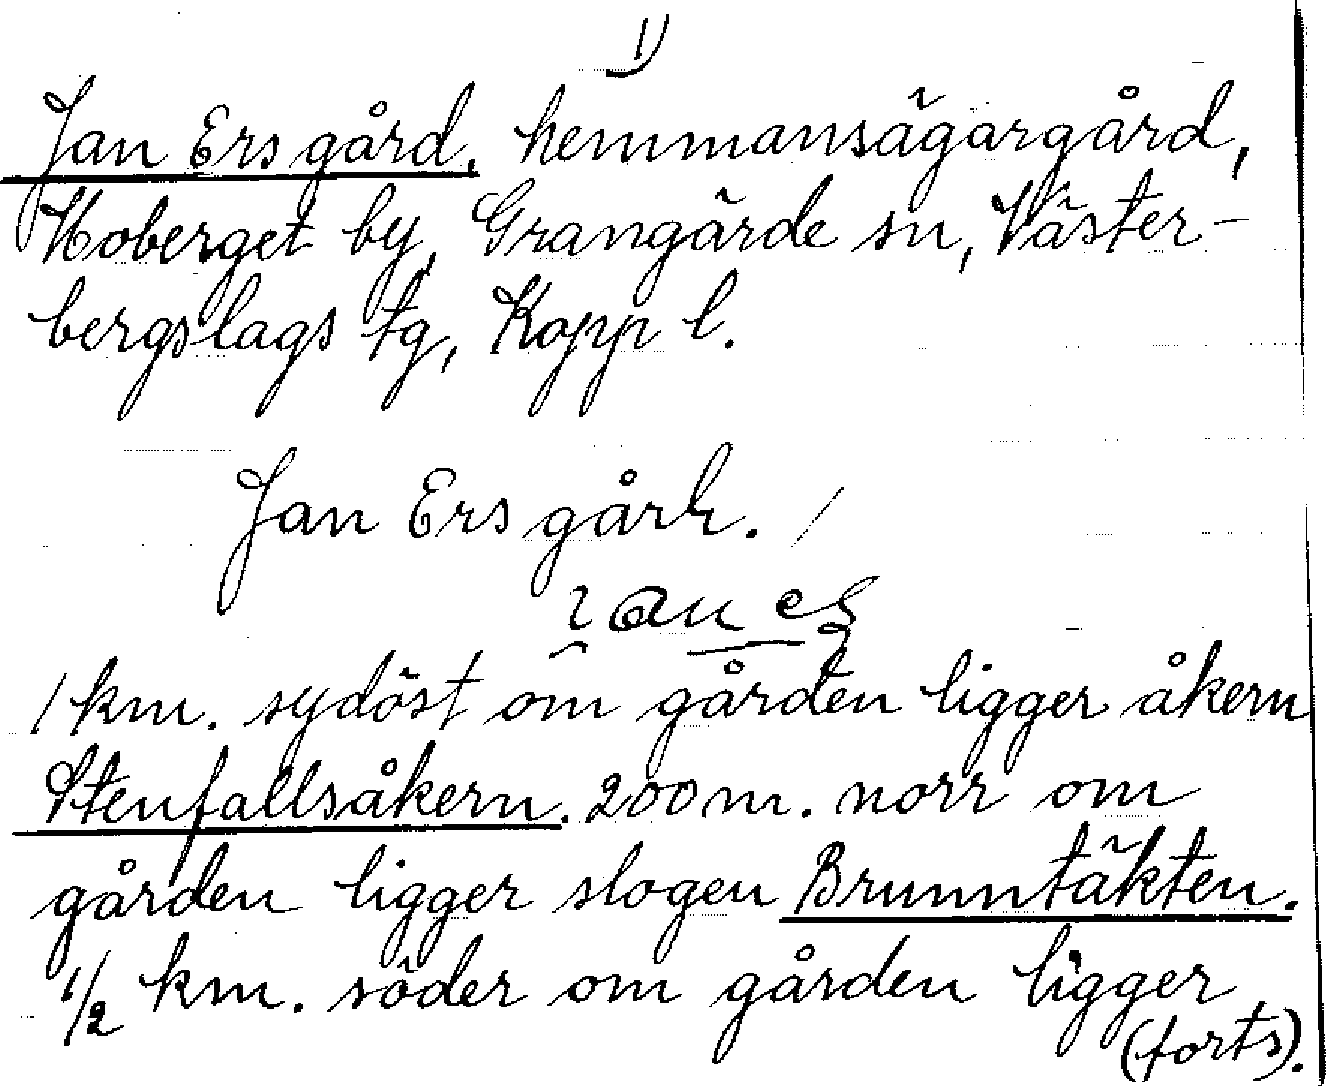 1)
Jan Ers gård, hemmansägargård,
Hoberget by, Grangärde sn, Väster-
bergslags tg, Kopp l.
Jan Ers gård.
1 km. sydöst om gården ligger åkern
Stenfallsåkern. 200 m. norr om
gården ligger slogen Brunntäkten.
1/2 km. söder om gården ligger
(forts).